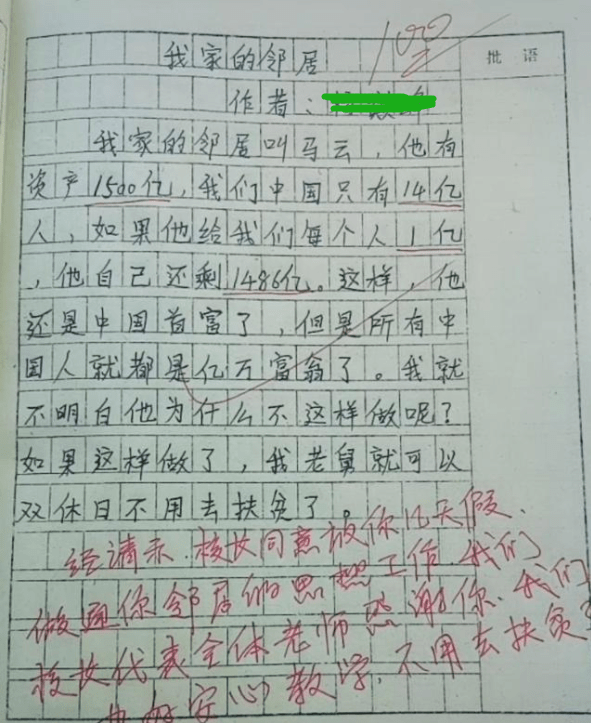 100
批语
我家的邻居
作者:
我家的邻居叫马云,他有
资产1500亿,我们中国只有14亿
人,如果他给我们每个人1亿
,他自己还剩1486亿。这样,他
还是中国首富了,但是所有中
国人就都是亿万富翁了。我就
不明白他为什么不这样做呢?
如果这样做了,我老舅就可以
双休日不用去扶贫了。
经请示、校女同意放你几天假、
做通你邻居的思想工作、我们
校女代表全体老师感谢你、我们
安心教学,不用去扶贫